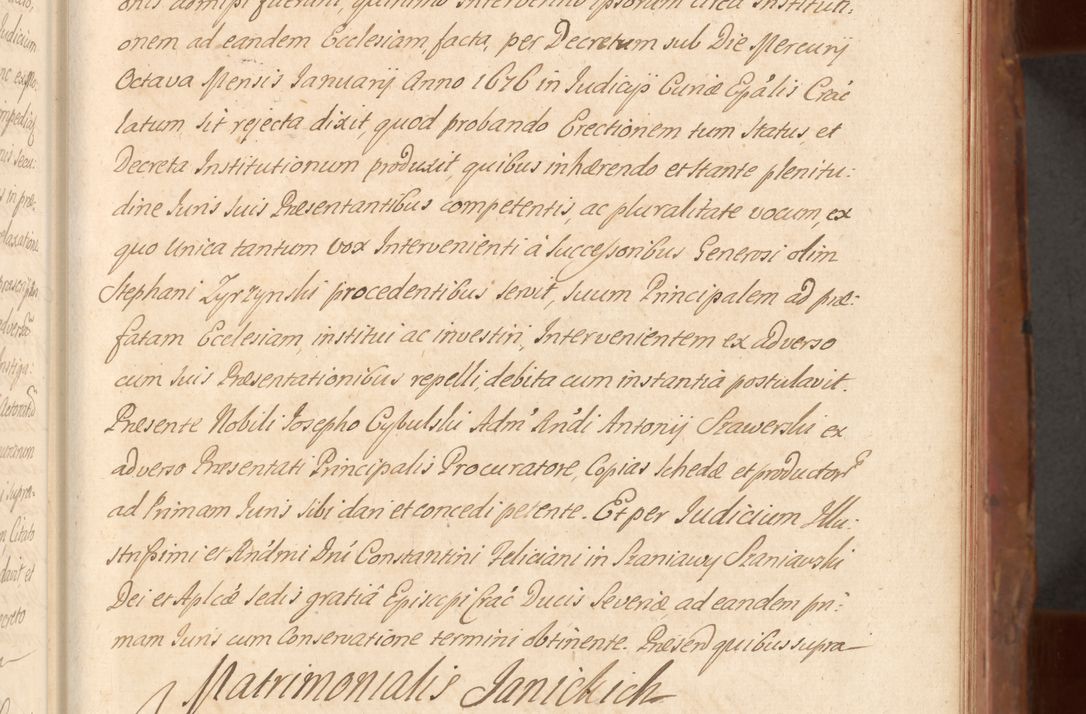 onis admissi fuerunt, quinimo Interventio ipsorum circa Instituti:
onem ad eandem Ecclesiam, facta, per Decretum sub Die Mercurij
Octava Mensis Januarij Anno 1676 in Judicijs Curiæ Epális Crac̃
latum sit rejecta dixit, quod probando Erectionem tum Status, et
Decreta Institutionum produxit, quibus inhærendo et stante plenitu:
dine Juris suis Præsentantibus competentis, ac pluralitate vocum, ex
quo Unica tantum vox Intervenienti à Successoribus Generosi olim
Stephani Zyrzynski procedentibus servit, suum Principalem ad præ:
fatam Ecclesiam, institui ac investiri, Intervenientem ex adverso
cum suis Præsentationibus repelli, debita cum instantia postulavit.
Præsente Nobili Josepho Cybulski Adm̃ Rñdi Antonij Szawerski ex
adverso Præsentati Principalis Procuratore, Copias Schedæ et productor̃
ad Primam Juris sibi dari et concedi petente. Et per Judicium Illu:
strissimi et Rñdmi Dñi Constantini Feliciani in Szaniawy Szaniawski
Dei et Aplcæ Sedis gratiâ Episcopi Crac̃ Ducis Severiæ ad eandem pri:
mam Juris cum Conservatione termini obtinente. Præsend quibus supra
Matrimonialis Janickich